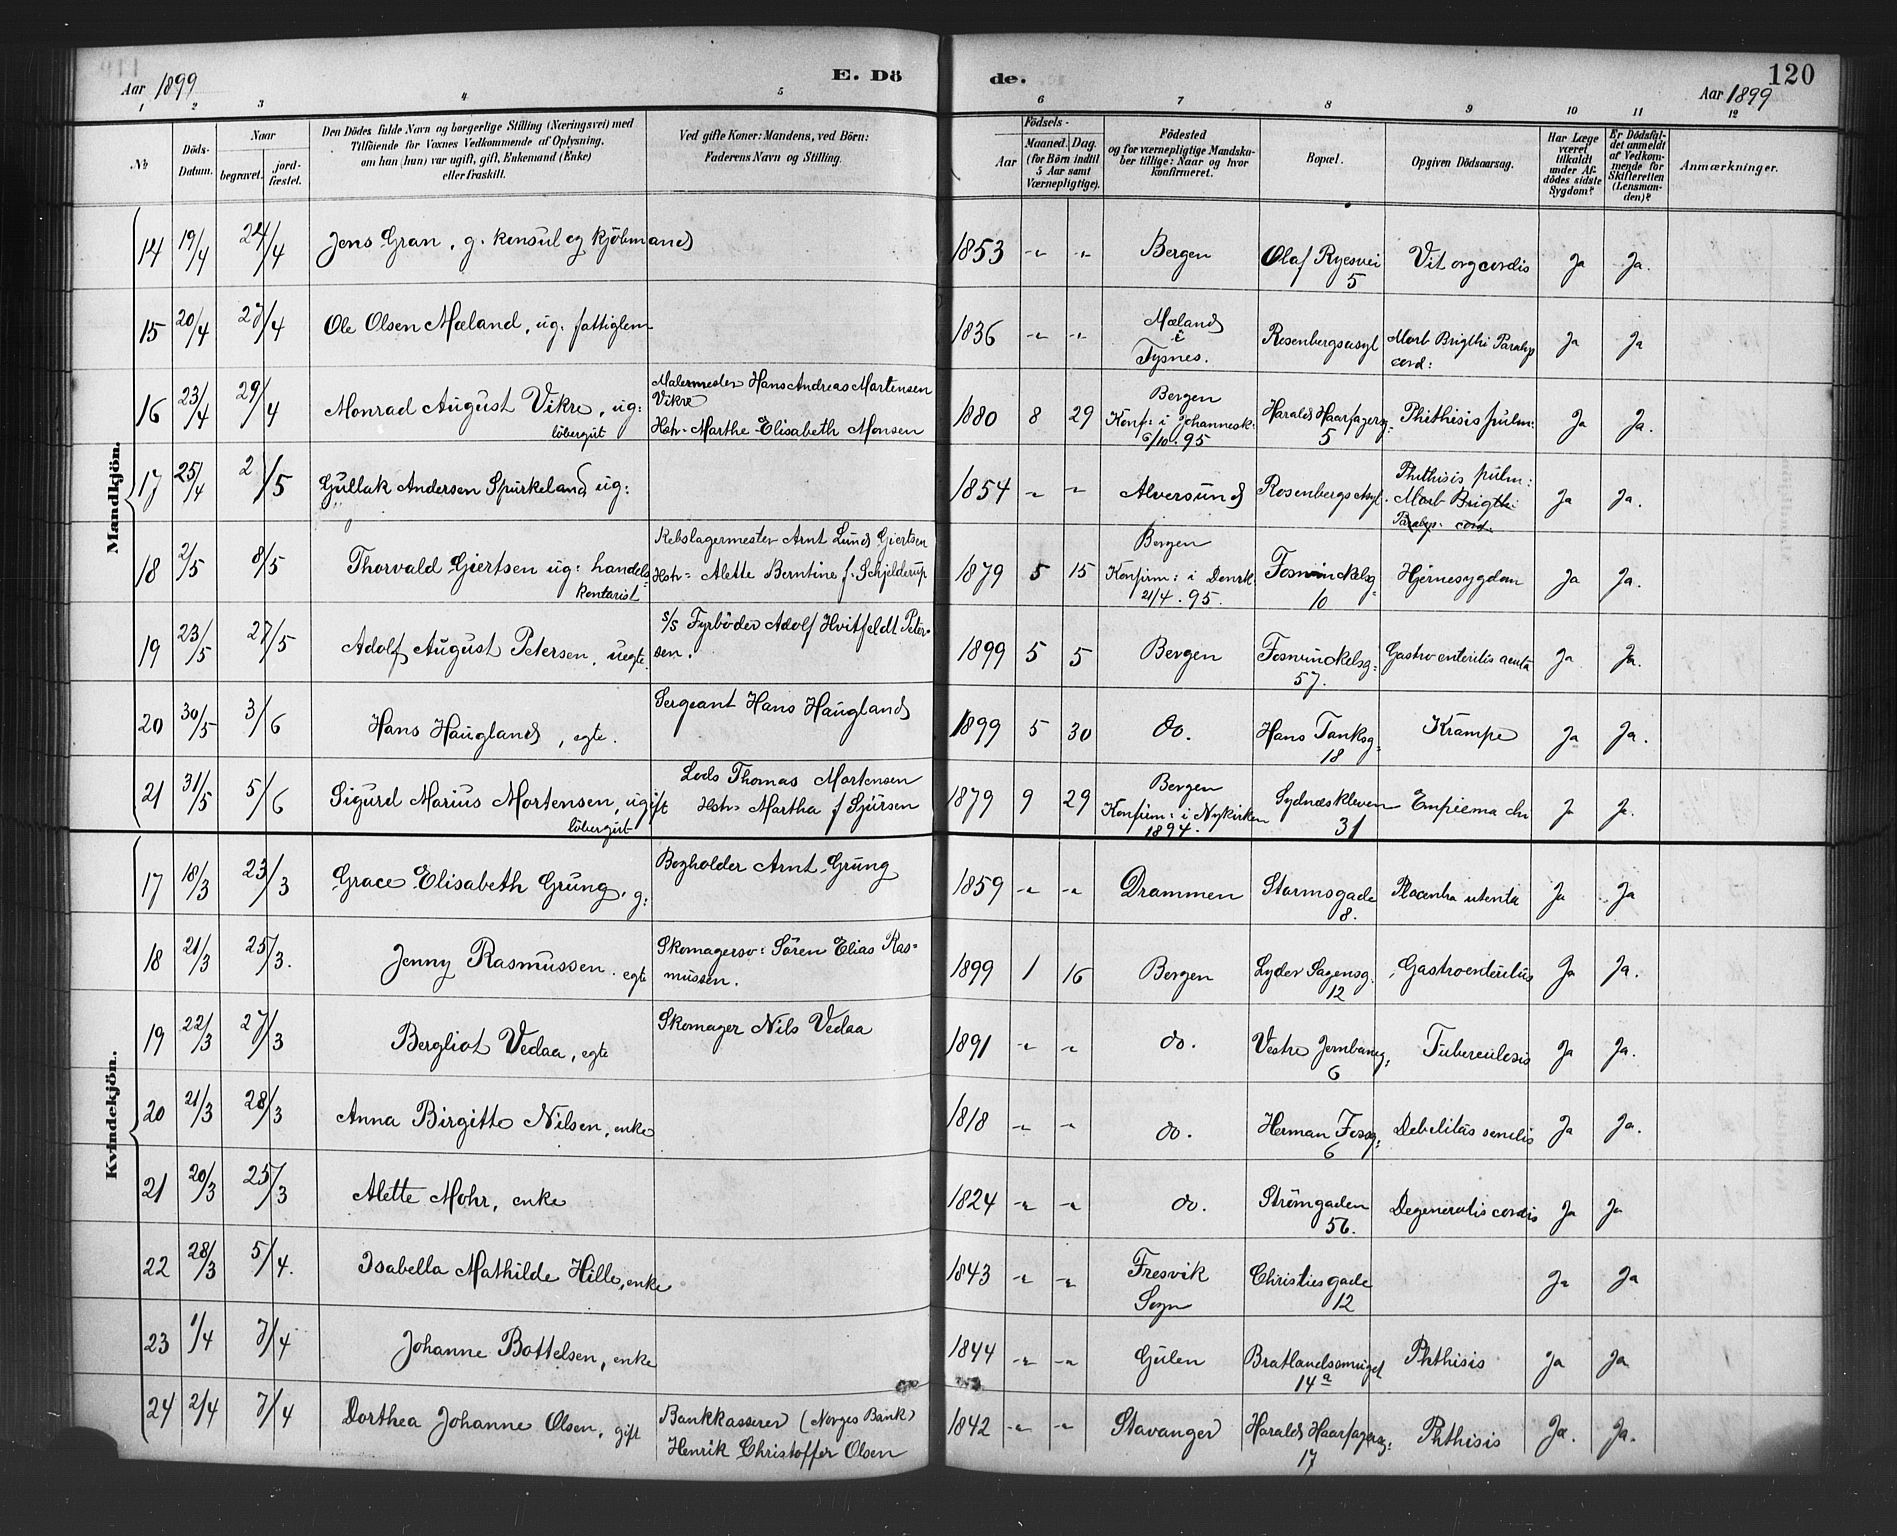 Aar 1899 E. Dö de. Aar 1899 120
1 2 3 4 5 6 7 8 9 10 11 12
No. Döds-Datum. Naar begravet. jordfæstet. Den Dödes fulde Navn og borgerlige Stilling (Næringsvei) med Tilföiende for Voxnes Vedkommende af Oplysning, om han (hun) var ugift, gift, Enkemand (Enke) eller fraskilt. Ved gifte Koner: Mandens, ved Börn: Faderens Navn og Stilling. Födsels- Aar Maaned. Dag. (for Börn indtil 5 Aar samt Værnepligtige). Födested og for værnepligtige Mandskaber tillige: Naar og hvor konfirmeret. Bopæl. Opgiven Dödsaarsag. Har Læge været tilkaldt under Afdödes sidste Sygdom? Er Dödsfaldet anmeldt af Vedkommende for Skifteretten (Lensmanden)? Anmærkninger.
Mandkjön.
14 19/4 24/4 Jens Gran, g. konsul og kjöbmand 1853 -"- -"- Bergen Olaf Ryesvei 5 Vit org cordis Ja Ja.
15 20/4 27/4 Ole Olsen Mæland, ug. fattiglem 1836 -"- -"- Mæland i Tysnes. Rosenbergsasyl Morb Brigthi Paralyp cord: Ja Ja
16 23/4 29/4 Monrad August Vikre, ug: löbergut Malermester Hans Andreas Mortensen Vikre Hstr- Marthe Elisabeth Monsen 1880 8 29 Bergen Konf: i Johannesk: 6/10. 95 Harald Haarfagersg: 5 Phthisis pulm: Ja Ja.
17 25/4 2/5 Gullak Andersen Spurkeland, ug: 1854 -"- -"- Alversund Rosenbergs Asyl. Phthisis pulm: Morb Brigthi Paralyp. cord. Ja Ja.
18 2/5 8/5 Thorvald Giertsen ug: handels kontorist Rebslagermester Arnt Lund Giertsen Hstr- Alette Berntine f. Schjelderup 1879 5 15 Bergen Konfirm: i Domk. 21/4. 95. Fosvinckelsg: 10 Hjernesygdom Ja Ja.
19 23/5 27/5 Adolf August Petersen, uegte. s/s Fyrböder Adolf Hvitfeldt Petersen. 1899 5 5 Bergen Fosvinckelsg: 57. Gastro enteritis acuta Ja Ja.
20 30/5 3/6 Hans Haugland, egte. Sergeant Hans Haugland 1899 5 30 do. Hans Tanksg: 18 Krampe Ja Ja.
21 31/5 5/6 Sigurd Marius Mortensen, ugift löbergut Lods Thomas Mortensen Hstr- Martha f Sjursen 1879 9 29 Bergen Konfirm: i Nykirken 1894. Sydnæskleven 31 Empiema chr Ja Ja.
Kvindekjön.
17 18/3 23/3 Grace Elisabeth Grung. g: Bogholder Arnt Grung 1859 -"- -"- Drammen Stormsgade 8. Placenta Ja Ja
18 21/3 25/3. Jenny Rasmussen. egte Skomagersv: Sören Elias Rasmussen. 1899 1 16 Bergen Lyder Sagensg. 12 Gastroenteritis Ja Ja.
19 22/3 27/3 Bergliot Vedaa, egte Skomager Nils Vedaa 1891 -"- -"- do. Vestre Jernbaneg: 6 Tuberculosis Ja Ja.
20 21/3 28/3 Anna Birgitte Nilsen, enke 1818 -"- -"- do. Herman Fossg: 6 Debelitas senilis Ja Ja.
21 20/3 25/3 Alette Mohr, enke 1824 -"- -"- do. Strömgaden 56. Degeneratis cordis Ja Ja
22 28/3 5/4. Isabella Mathilde Hille, enke 1843 -"- -"- Fresvik Sogn Christiesgade 12 Ja Ja
23 1/4 7/4 Johanne Bottelsen, enke 1844 -"- -"- Gulen Bratlandsmuget 14a Phthisis Ja Ja
24 2/4 7/4 Dorthea Johanne Olsen, gift Bankkasserer (Norges Bank) Henrik Christoffer Olsen 1842 -"- -"- Stavanger Harald Haarfagersg: 17 Phthisis Ja. Ja.